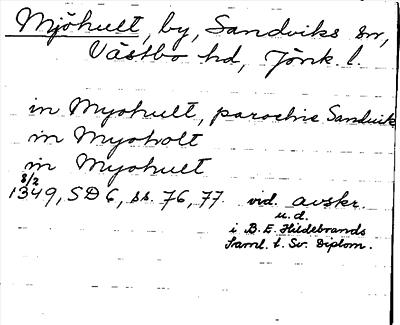 Mjöhult, by, Sandviks sn,
Västbo hd, Jönk. l.
in Myohult, parochie Sandwik
in Myoholt
in Myohult
8/2
1349, SD 6, ss. 76, 77. vid. avskr.
u.d.
i B. E. Hildebrands
Saml. t. Sv. Diplom.